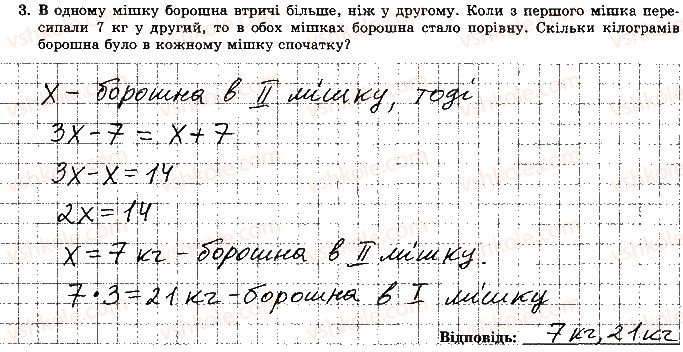 3. В одному мішку борошна втричі більше, ніж у другому. Коли з першого мішка пере-
сипали 7 кг у другий, то в обох мішках борошна стало порівну. Скільки кілограмів
борошна було в кожному мішку спочатку?
x – борошна в II мішку, тоді
3x – 7 = x + 7
3x – x = 14
2x = 14
x = 7 кг – борошна в II мішку.
7 · 3 = 21 кг – борошна в I мішку
Відповідь: 7 кг, 21 кг